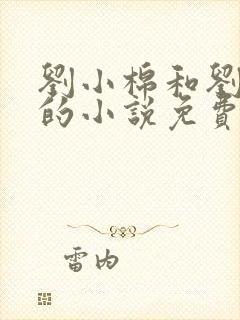 劉小棉和劉
的小說免費
雷内